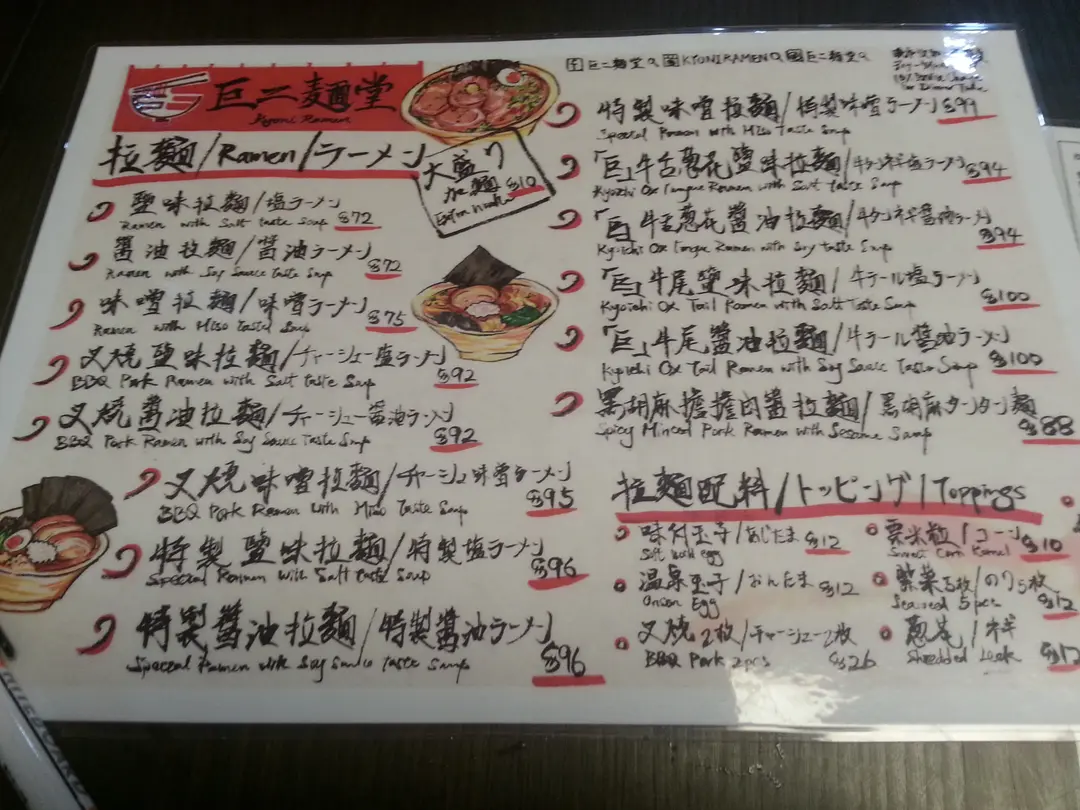 巨二麵堂
Kyoni Ramen
巨二麵堂 KYONIRAMEN 巨二麵堂
拉麵/Ramen/ラーメン
大盛り
加麵 $10
鹽味拉麵/塩ラーメン
Ramen with Salt taste Soup $72
醬油拉麵/醤油ラーメン
Ramen with Soy Sauce Taste Soup $72
味噌拉麵/味噌ラーメン
Ramen with Miso taste Soup $75
叉燒鹽味拉麵/チャーシュー塩ラーメン
BBQ Pork Ramen with Salt taste Soup $92
叉燒醬油拉麵/チャーシュー醤油ラーメン
BBQ Pork Ramen with Soy Sauce Taste Soup $92
叉燒味噌拉麵/チャーシュー味噌ラーメン
BBQ Pork Ramen with Miso Taste Soup $95
特製鹽味拉麵/特製塩ラーメン
Special Ramen with Salt taste Soup $96
特製醬油拉麵/特製醤油ラーメン
Special Ramen with Soy Sauce taste Soup $96
特製味噌拉麵/特製味噌ラーメン $99
Special Ramen with Miso Taste Soup
「巨」牛舌蔥花鹽味拉麵/牛タンネギ塩ラーメン
Kyoichi Ox Tongue Ramen with Salt taste Soup $94
「巨」牛舌蔥花醬油拉麵/牛タンネギ醤油ラーメン
Kyoichi Ox Tongue Ramen with Soy taste Soup $94
「巨」牛尾鹽味拉麵/牛テール塩ラーメン
Kyoichi Ox Tail Ramen with Salt Taste Soup $100
「巨」牛尾醬油拉麵/牛テール醤油ラーメン
Kyoichi Ox Tail Ramen with Soy Sauce Taste Soup $100
黑胡麻擔擔肉醬拉麵/黒胡麻タンタン麺
Spicy Minced Pork Ramen with Sesame Soup $88
拉麵配料/トッピング/Toppings
味付玉子/あじたま $12
Soft boil egg
溫泉玉子/おんたま $12
Onsen Egg
叉燒2枚/チャーシュー2枚
BBQ Pork 2pcs $26
粟米粒/コーン $10
Sweet Corn Kernel
紫菜5枚/のり5枚
Seaweed 5pcs $12
蔥花/ネギ
Shredded Leek $12